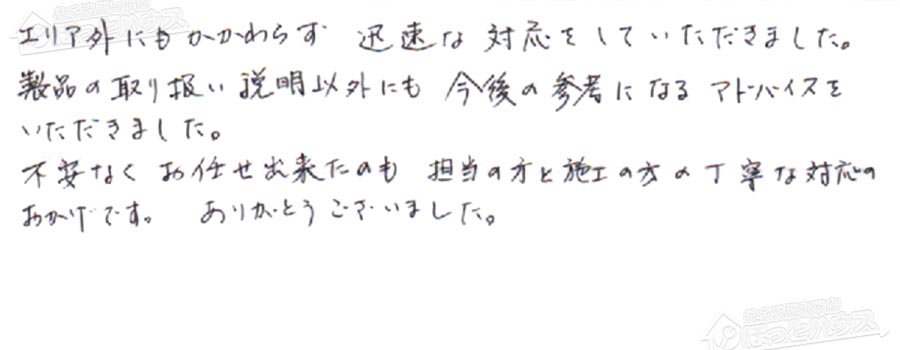 エリア外にもかかわらず 迅速な 対応をしていただきました。
製品の取り扱い説明以外にも 今後の参考になる アドバイスを
いただきました。
不安なく お任せ出来たのも 担当の方と施工の方の丁寧な対応の
おかげです。 ありがとうございました。
ほっとハウス